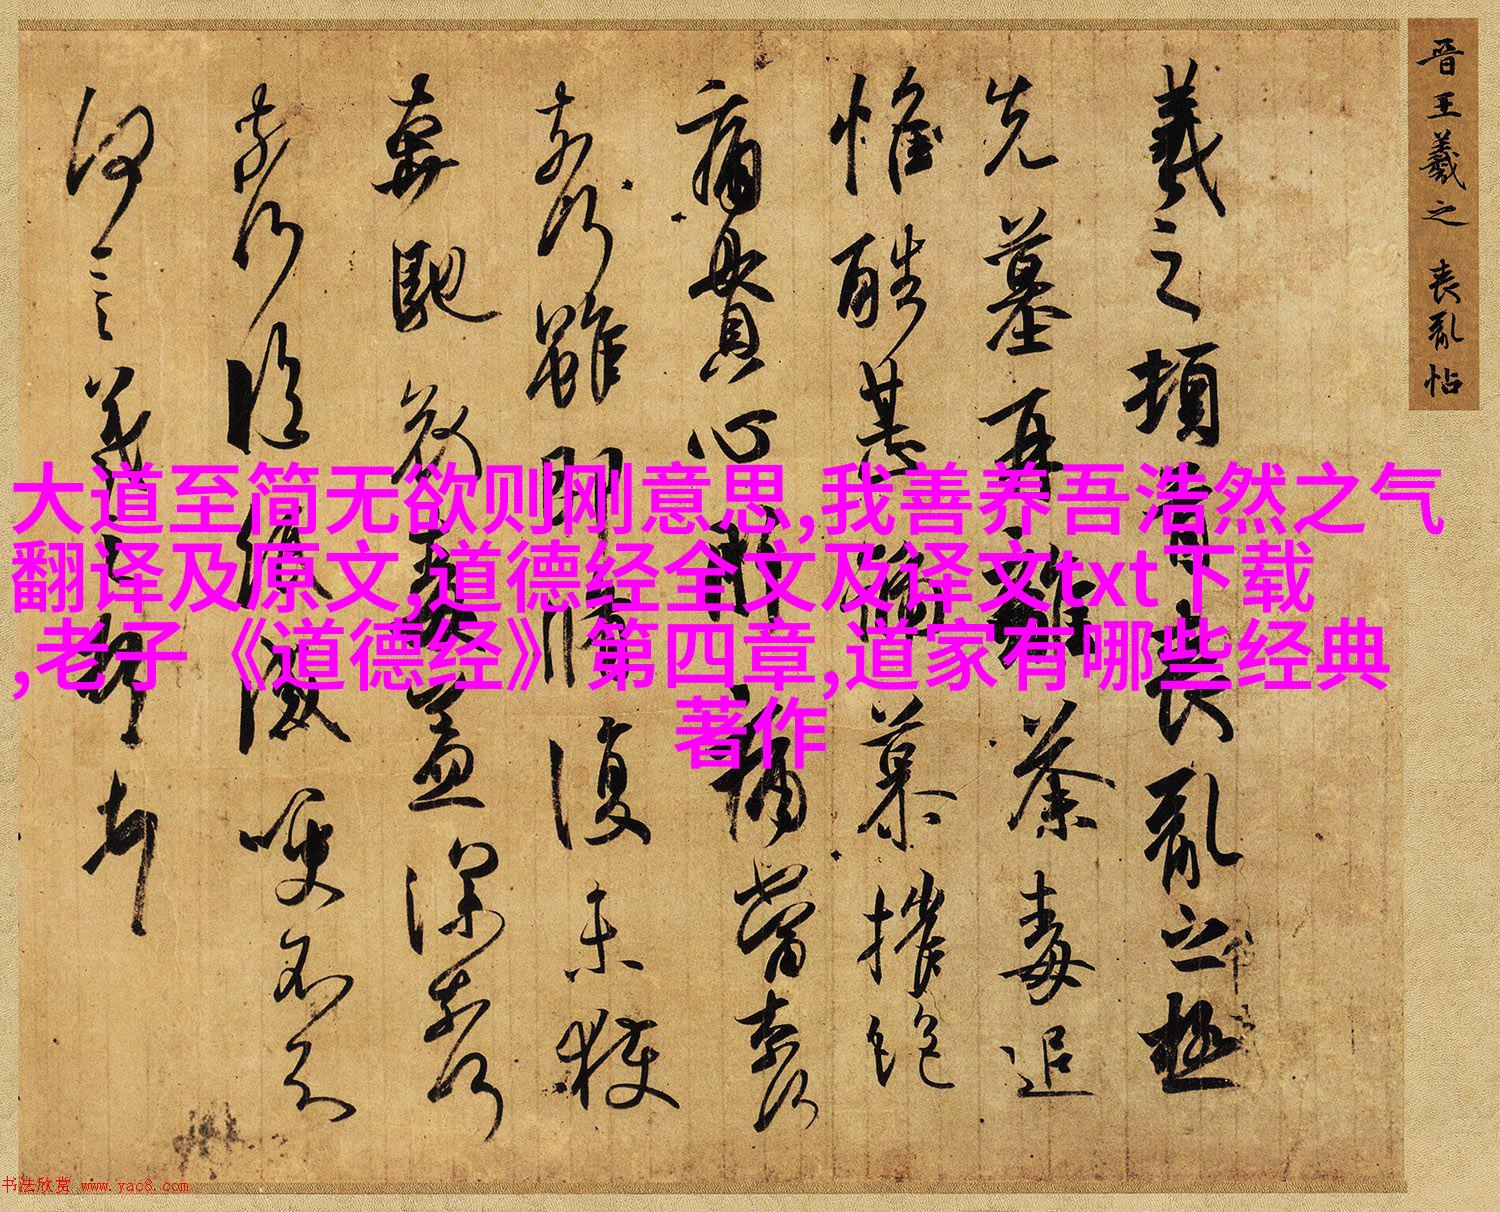 晋王羲之 喪亂帖
羲之頓首喪亂之極
先墓再離荼毒追
惟酷甚號慕摧絕
痛貫心肝痛當奈何
奈何雖即脩復未獲
奔馳哀毒益深奈何
奈何臨紙感哽不知
何言羲之頓首
大道至简无欲则刚意思,我善养吾浩然之气
翻译及原文,道德经全文及译文txt下载
,老子《道德经》第四章,道家有哪些经典
著作
书法欣赏 www.yac8.com